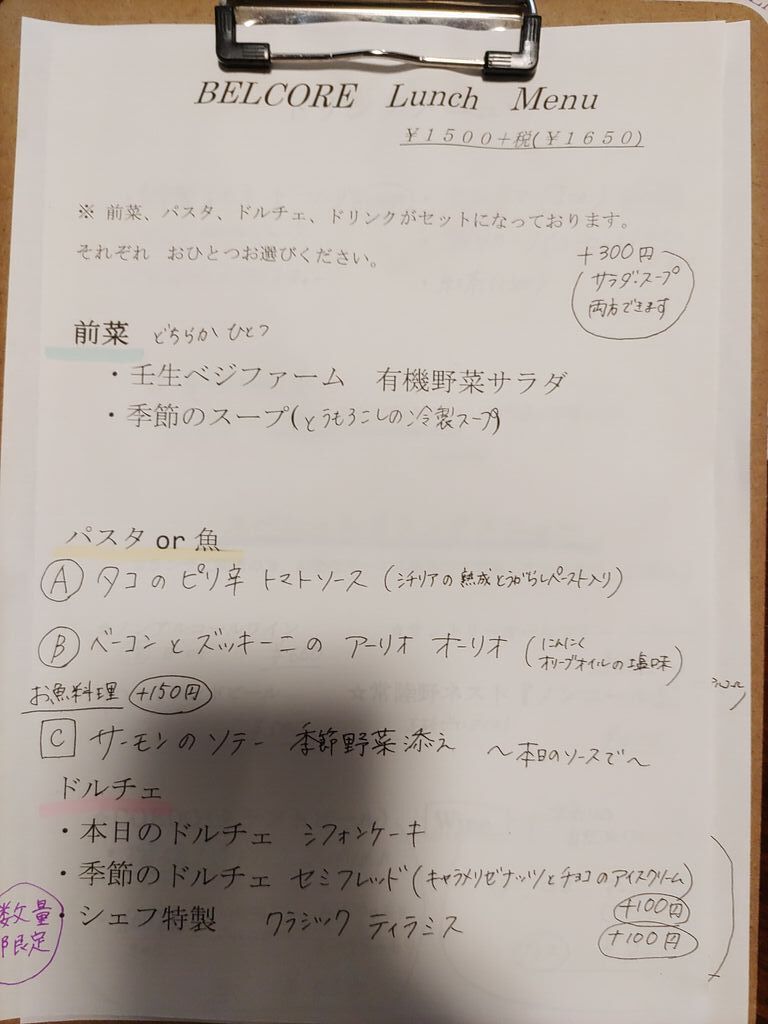 BELCORE Lunch Menu
¥1500+税(¥1650)
※ 前菜、パスタ、ドルチェ、ドリンクがセットになっております。
それぞれ おひとつお選びください。
+300円
サラダ・スープ
両方できます
前菜 どちらか ひとつ
・壬生ベジファーム 有機野菜サラダ
・季節のスープ(とうもろこしの冷製スープ)
パスタ or 魚
Ⓐ タコのピリ辛 トマトソース (シチリアの熟成とうがらしペースト入り)
Ⓑ ベーコンとズッキーニの アーリオ オーリオ (にんにく
オリーブオイルの塩味)
お魚料理 +150円
C サーモンのソテー 季節野菜添え ～本日のソースで～
ドルチェ
・本日のドルチェ シフォンケーキ
・季節のドルチェ セミフレッド(キャラメリゼナッツとチョコのアイスクリーム)
+100円
・シェフ特製 クラシック ティラミス
+100円
数量
限定